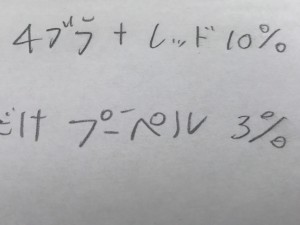 4ブラ + レッド 10%
だけ プーペル 3%